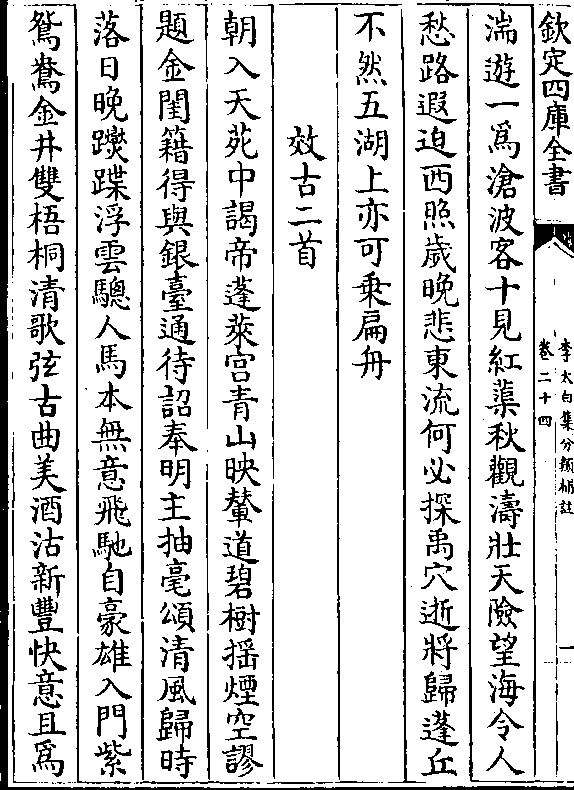 欽定四庫全書
李太白集分類補註
卷二十四
一
湍遊一爲滄波客十見紅蕖秋觀濤壯天險望海令人
愁路遐迫西照歲晚悲東流何必探禹穴逝將歸蓬丘
不然五湖上亦可乗扁舟
效古二首
朝入天苑中謁帝蓬萊宫青山映輦道碧樹揺煙空謬
題金閨籍得與銀臺通待詔奉明主抽毫頌清風歸時
落日晚蹀躞浮雲驄人馬本無意飛馳自豪雄入門紫
鴛鴦金井雙梧桐清歌弦古曲美酒沽新豐快意且爲